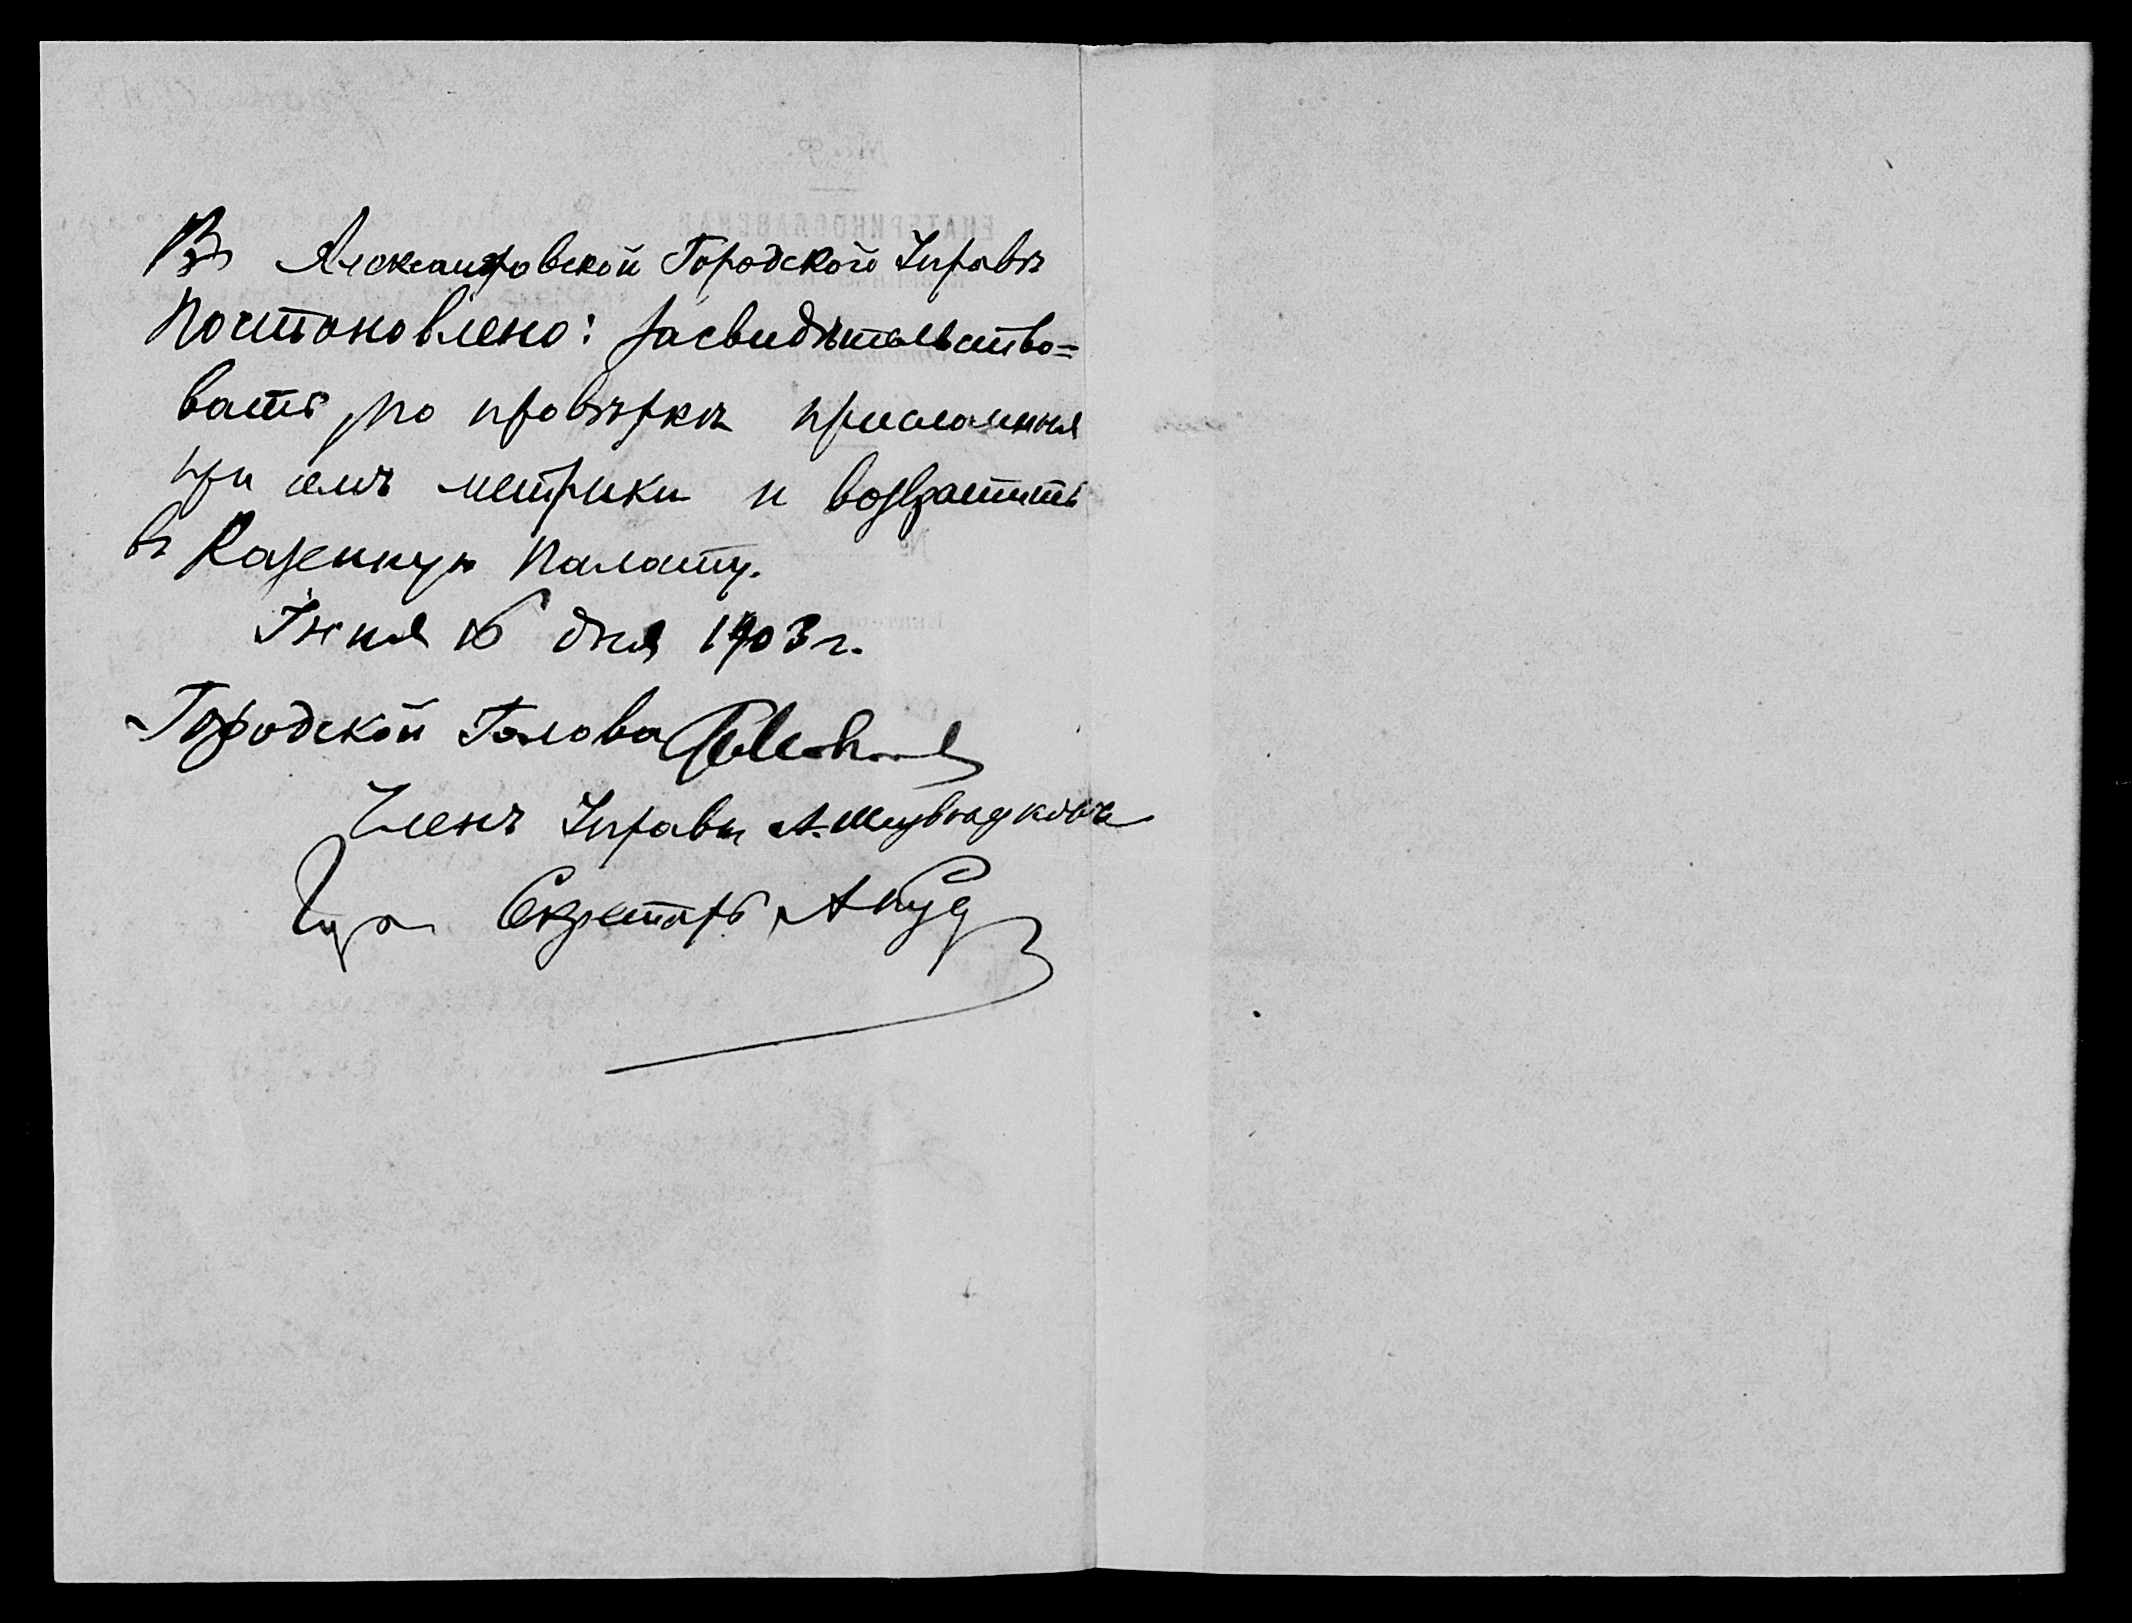 Въ Александровской Городской Управѣ
Постановлено: засвидѣтельство=
вать, по провѣркѣ присланныя
при семъ метрики и возвратить
въ Казенную Палату.
Іюня 16 дня 1903 г.
Городской Голова
Членъ Управы А.
Секретарь
ЕКАТЕРИНОСЛАВСКАЯ
№